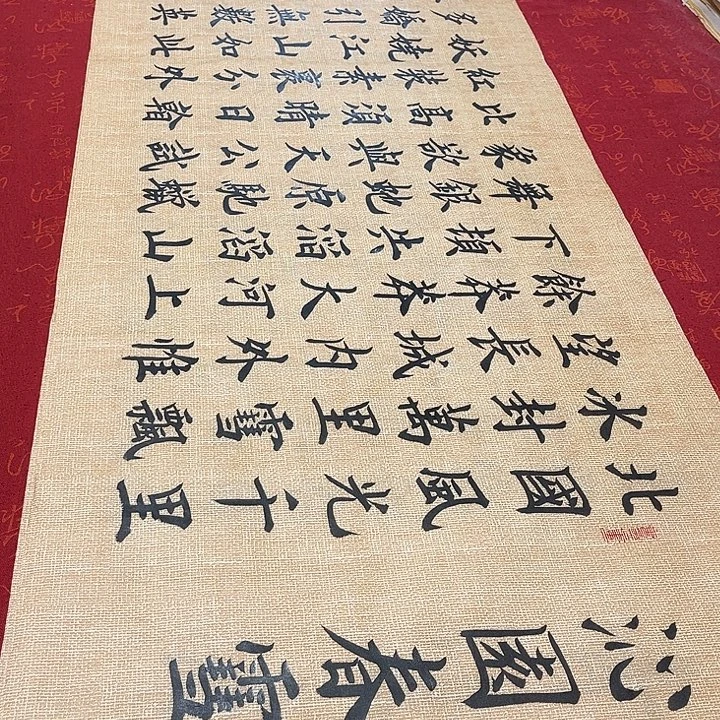 沁園春雪
北國風光十里
冰封萬里雪飄
望長城內外惟
餘莽莽大河上
下頓失滔滔山
舞銀蛇原馳蠟
象欲與天公試
比高須晴日看
紅裝素裹分外
妖嬈江山如此
多嬌引無數英